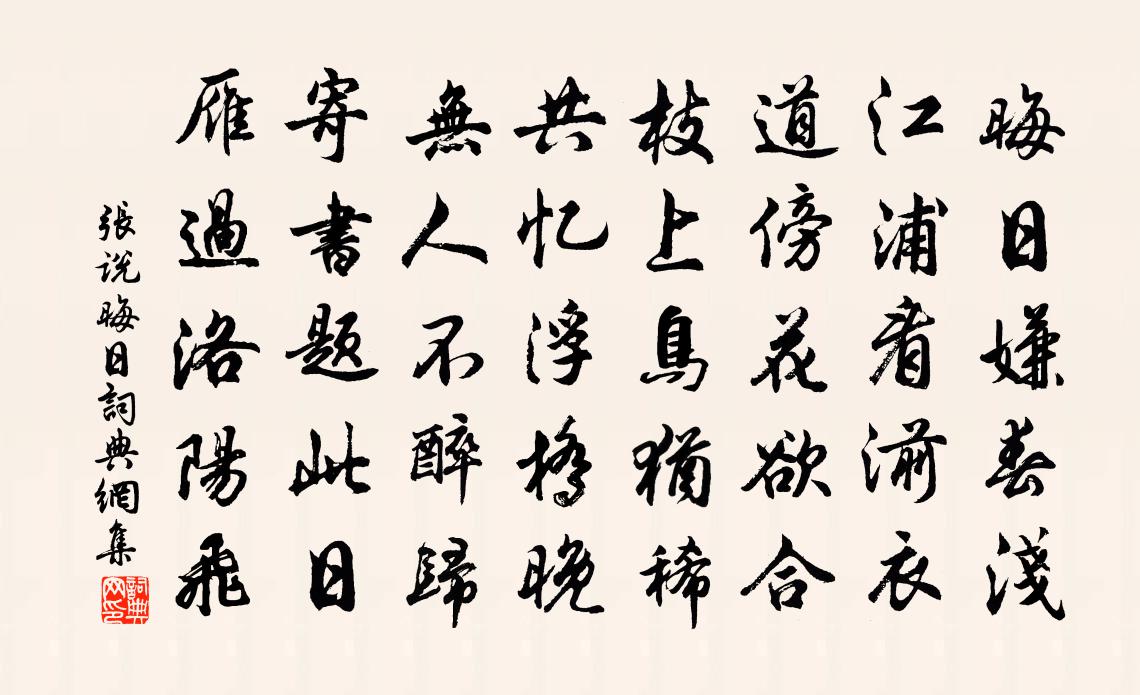 晦日嫌春淺
江浦看湔衣
道傍花欲合
枝上鳥猶稀
共忆浮橋晚
無人不醉歸
寄書題此日
雁過洛陽飛
張说晦日詞典網集
詞典网印